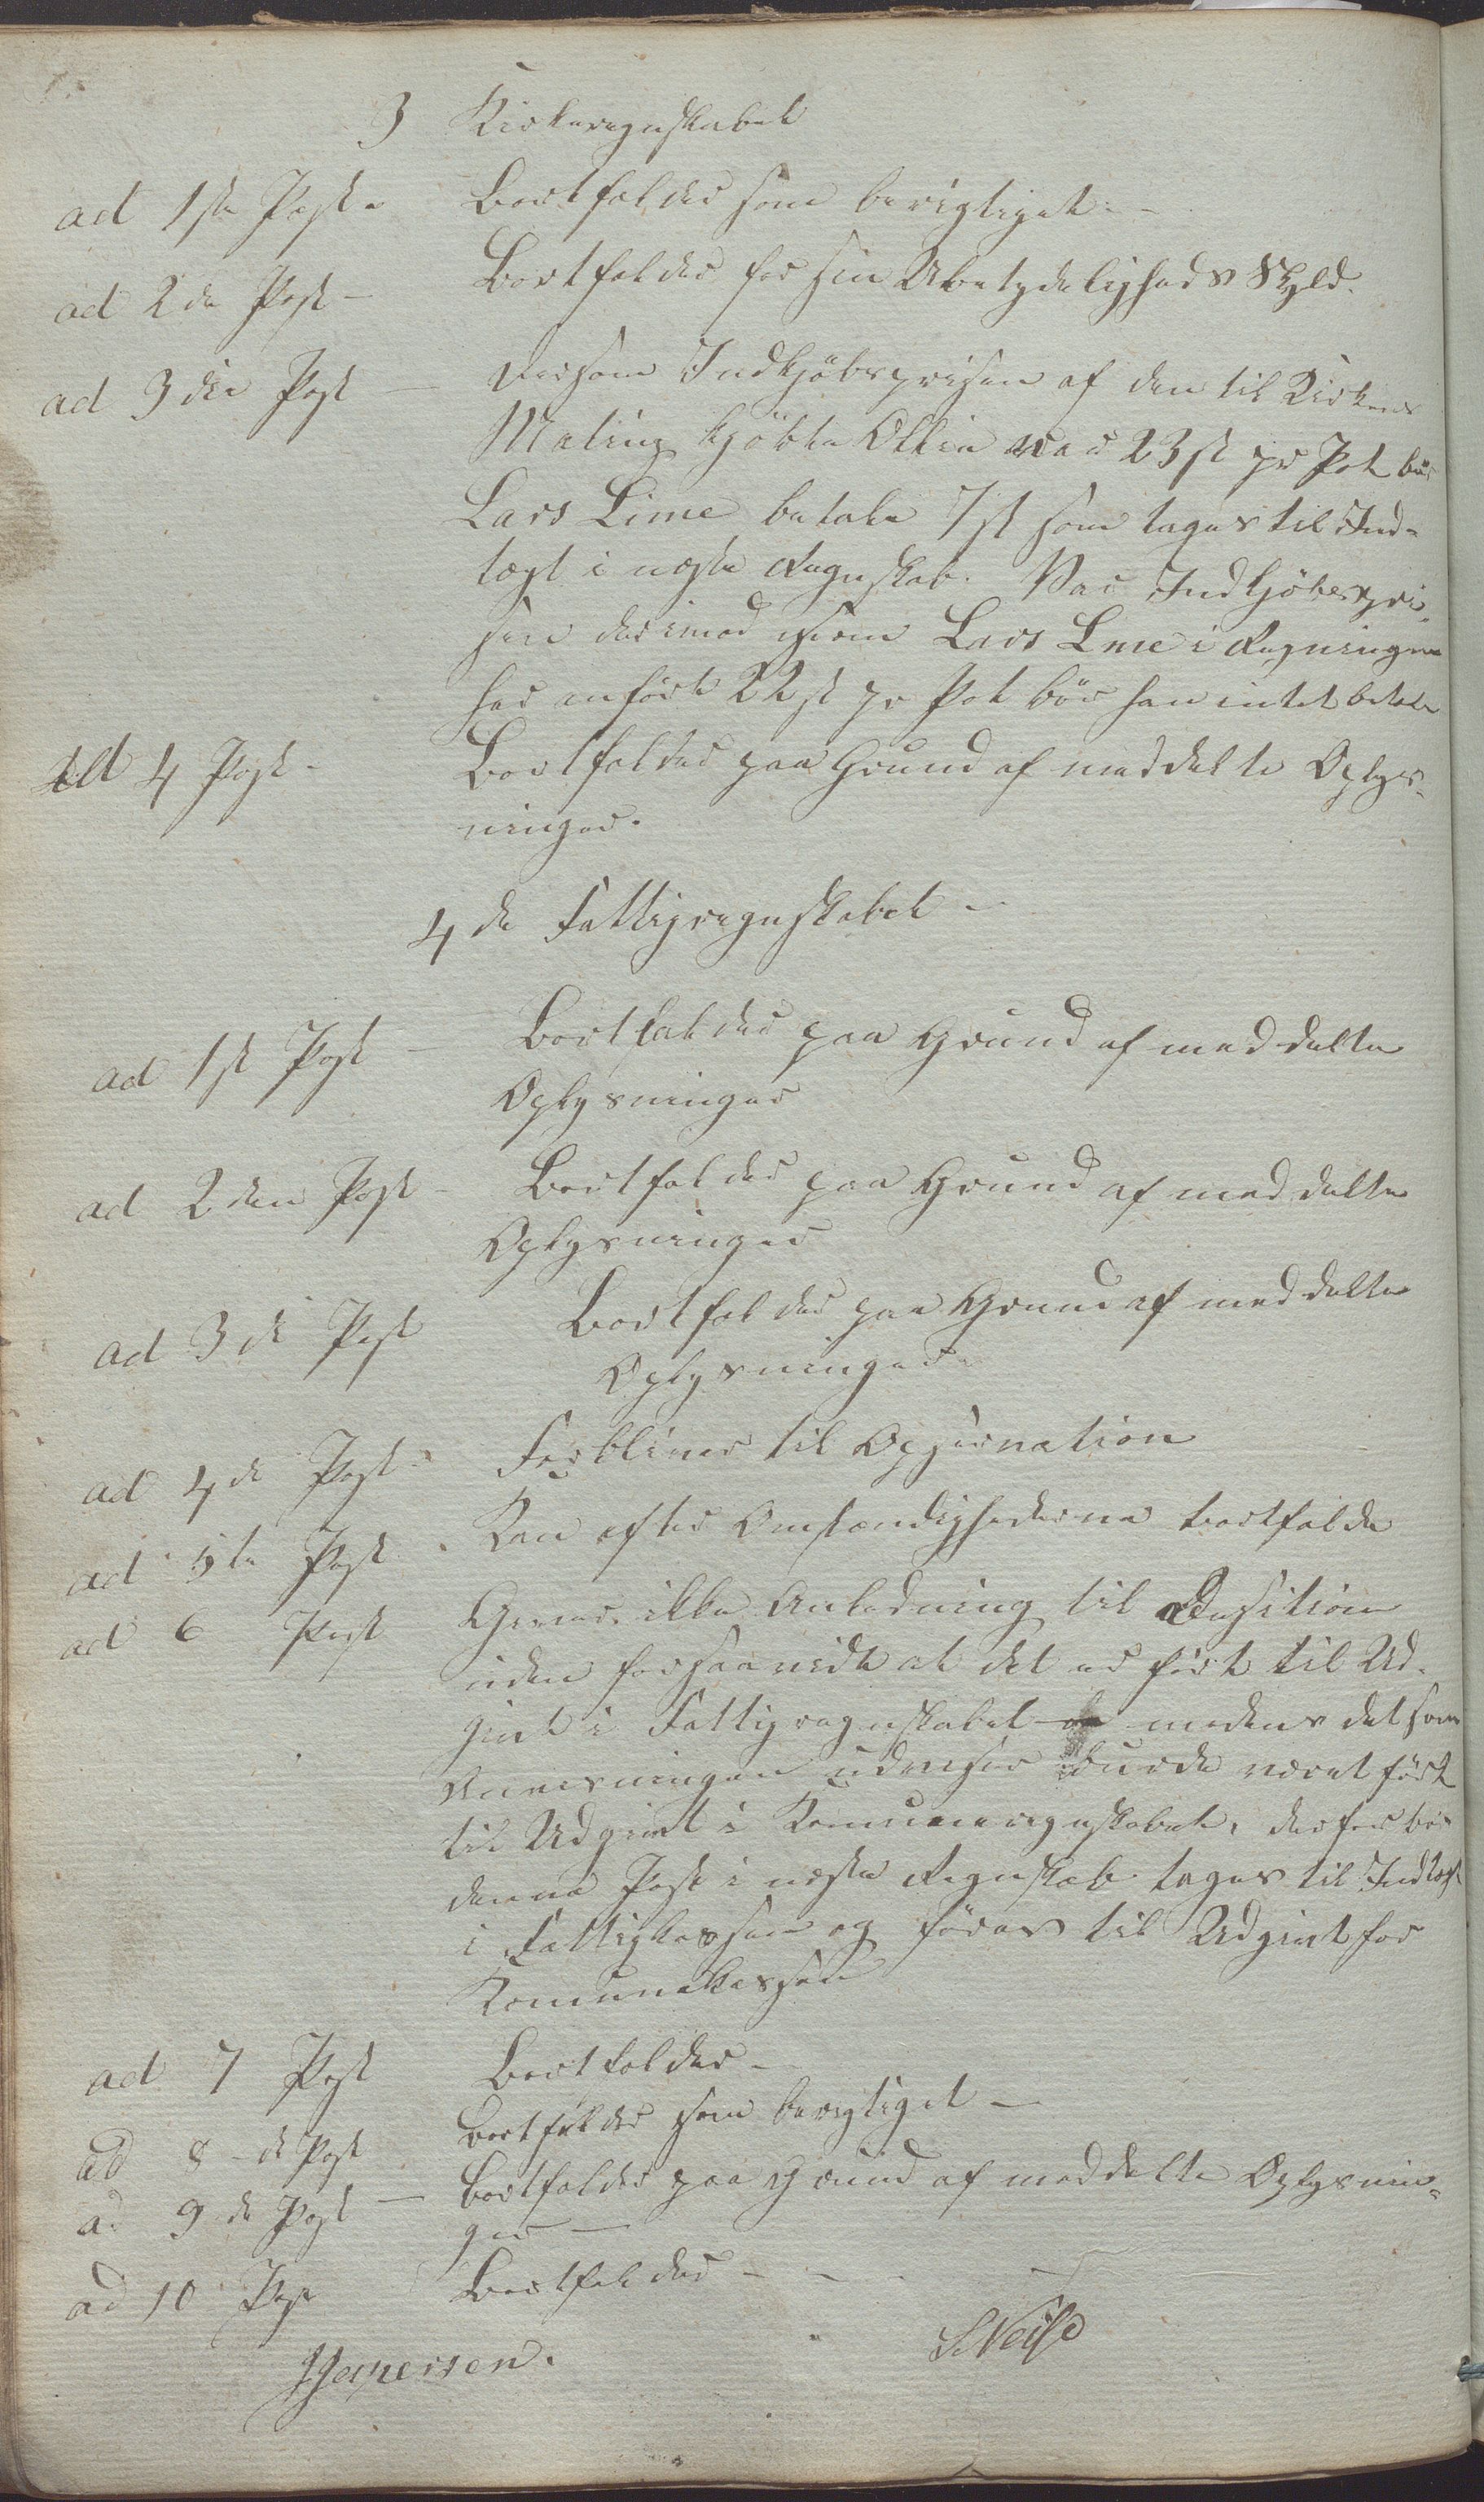 3 Kirkeregnskabet
ad 1ste Post - Bortfalder som berigtiget. -
ad 2den Post - Bortfalder for sin Ubetydeligheds Skyld.
ad 3die Post - Dersom Indkjöbsprisen af den til Kirkens
Maling kjöbte Ollie var 23 sk pr Pot bör
Lars Lime betale 7 sk som tages til Ind-
tægt i næste Regnskab. Var Indkjöbspri-
sen derimod som Lars Lme i Regningen
har anfört 22 sk pr Pot bör han intet betale
ad 4 Post - Bortfalder paa Grund af meddelte Oplys-
ninger.
4de Fattigregnskabet -
ad 1st Post - Bortfalder paa Grund af meddelte
Oplysninger
ad 2den Post - Bortfalder paa Grund af meddelte
Oplysninger
ad 3die Post Bortfalder paa Grund af meddelte
Oplysninger
ad 4de Post - Forbliver til Observation
ad 5te Post. Kan efter Omstændighederne bortfalde
ad 6 Post Giver ikke Anledning til
uden forsaavidt at det er fört til Ud-
givt i Fattigregnskabet medens det som
Anvisningen udviser burde været fört
til Udgivt i Komuneregnskabet, derfor bör
denne Post i næste Regnskab tages til Indtægt
i Fattigkassen og föres til Udgivt for
Komunekassen
ad 7 Post Bortfalder -
ad 8-de Post Bortfalder som berigtiget -
ad 9de Post - Bortfalder paa Grund af meddelte Oplysnin-
ger -
ad 10 Post Bortfalder - -
JJespersen. S Neise